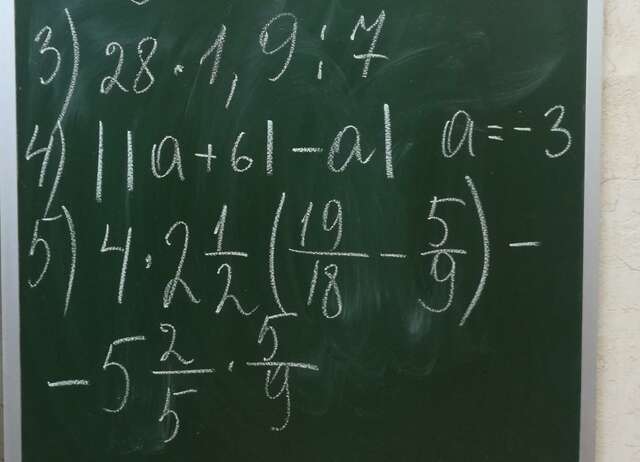 3) 28 · 1,9 : 7
4) ||a+6|-a| a=-3
5) 4 · 2 1/2 (19/18 - 5/9) -
- 5 2/5 · 5/9